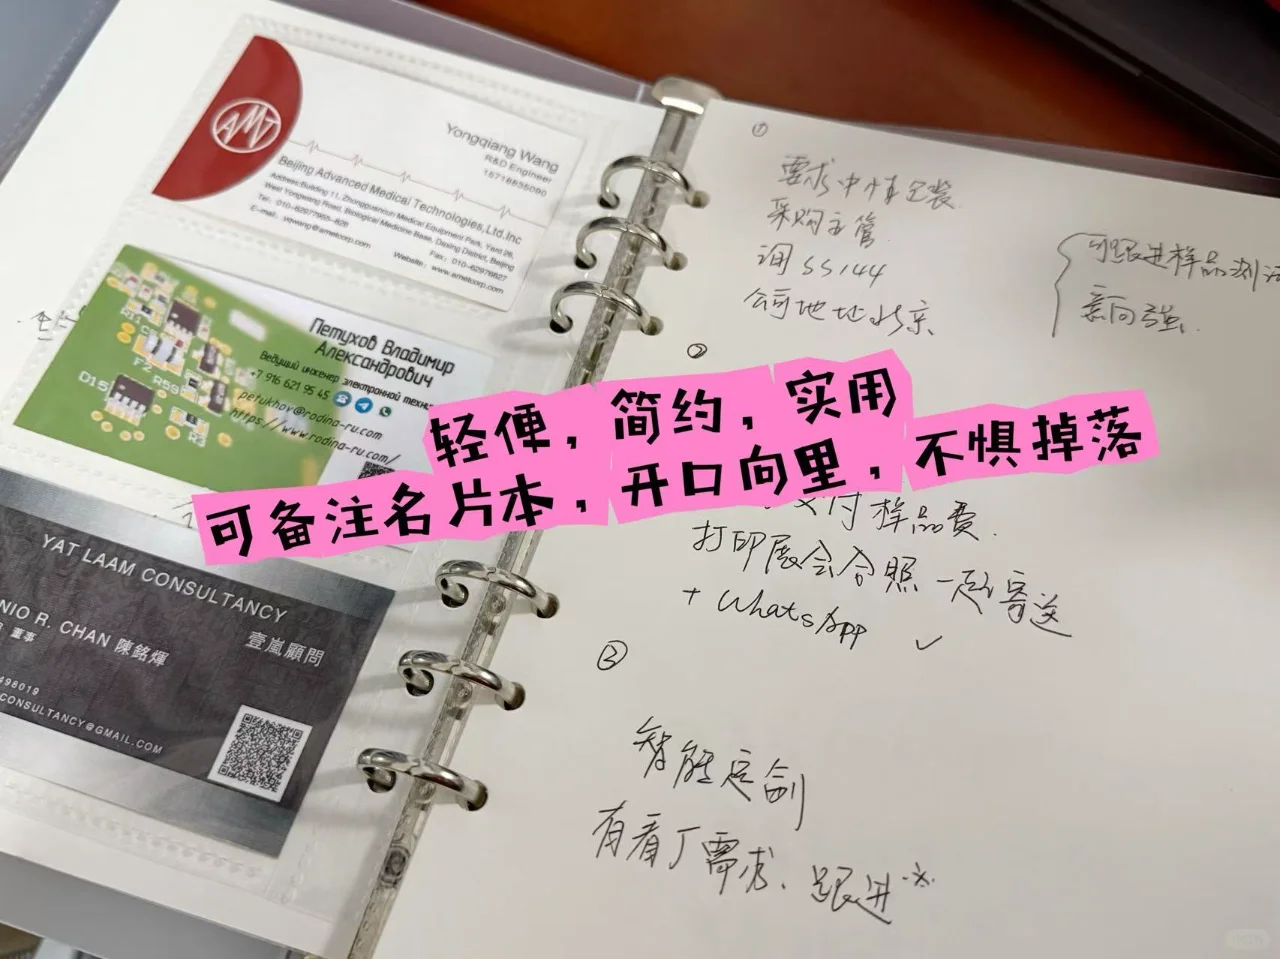 AMT
Yongqiang Wang
R&D Engineer
15718855090
Beijing Advanced Medical Technologies,Ltd.Inc
Address:Building 11, Zhongguancun Medical Equipment Park, Yard 26,
West Yongwang Road, Biological Medicine Base, Daxing District, Beijing
Tel: 010-62977955-826 Fax: 010-62976827
E-mail: yqwang@ametcorp.com
Website: www.ametcorp.com
Петухов Владимир
Александрович
Ведущий инженер электронной техни
+7 916 621 95 45
petukhov@rodina-ru.com
https://www.rodina-ru.com/
F2
D15
YAT LAAM CONSULTANCY
壹嵐顧問
NIO R. CHAN 陳銘煇
董事
498019
CONSULTANCY@GMAIL.COM
①
要求中性包装
采购主管
询SS144
公司地址北京
可跟进样品测试
意向强
②
轻便，简约，实用
可备注名片本，开口向里，不惧掉落
支付样品费.
打印展会合照一起寄送
+ WhatsApp ✓
③
智能定制
有看了需求、跟进